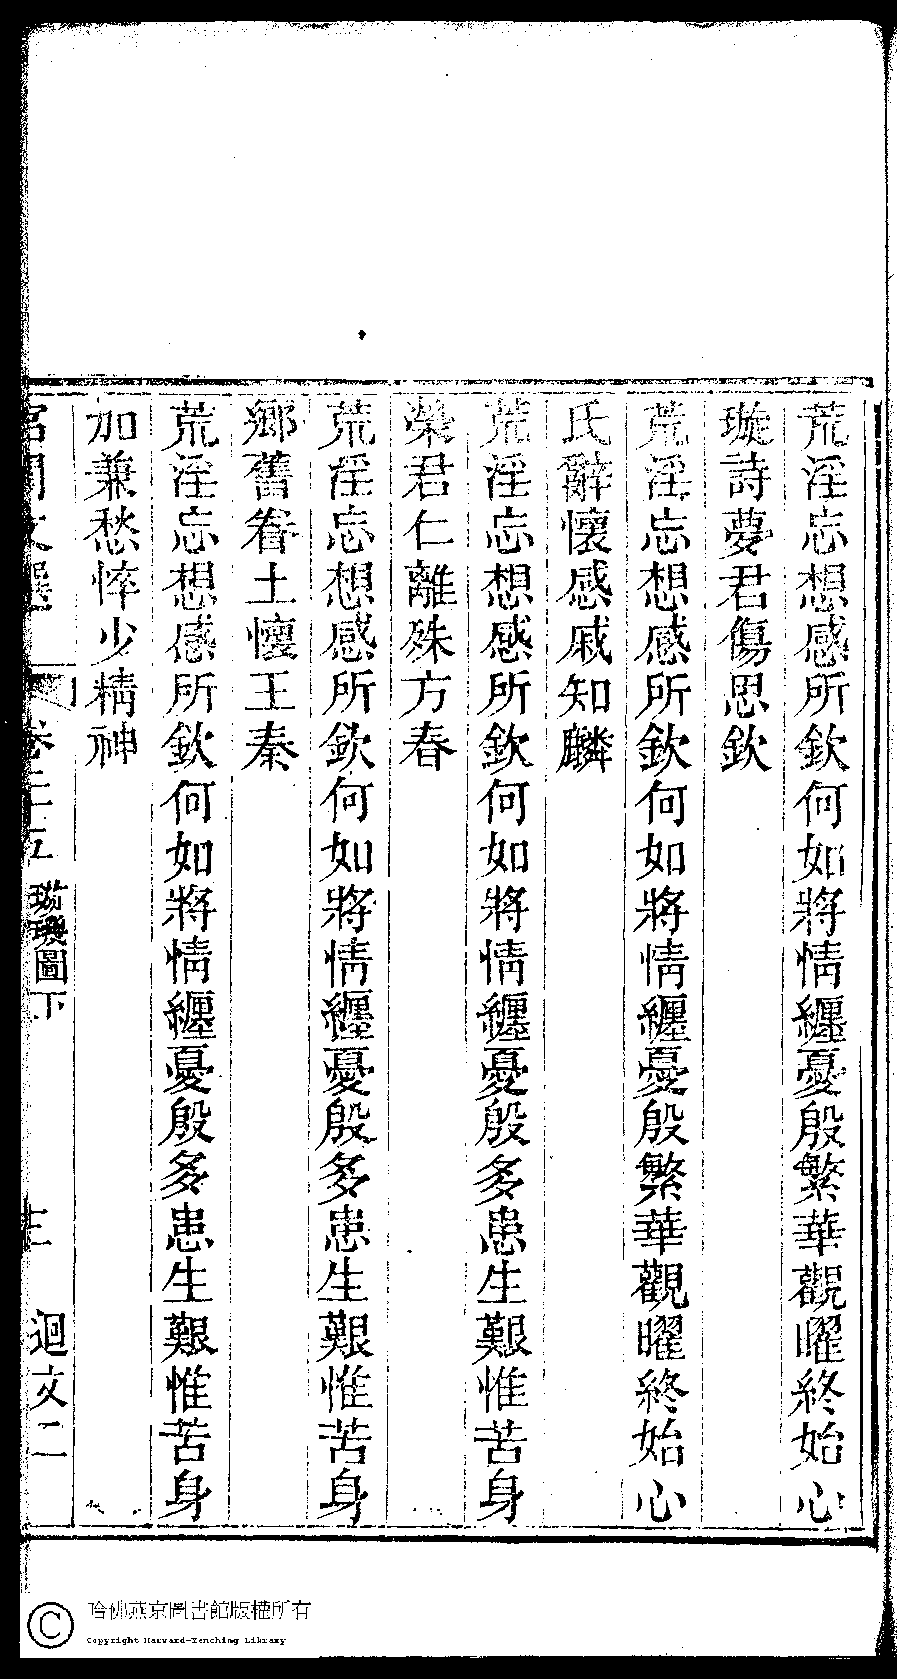 荒淫忘想感所欽何如將情纏憂殷繁華觀曜終始心
璇詩夢君傷思欽
荒淫忘想感所欽何如將情纏憂殷繁華觀曜終始心
氏辭懷感戚知麟
荒淫忘想感所欽何如將情纏憂殷多患生艱惟苦身
榮君仁離殊方春
荒淫忘想感所欽何如將情纏憂殷多患生艱惟苦身
鄉舊眷土懷王秦
荒淫忘想感所欽何如將情纏憂殷多患生艱惟苦身
加兼愁悴少精神
宮閨文選 卷二十五 璿璣圖下 三 迴文二
哈佛燕京圖書館版權所有
Copyright Harvard-Yenching Library